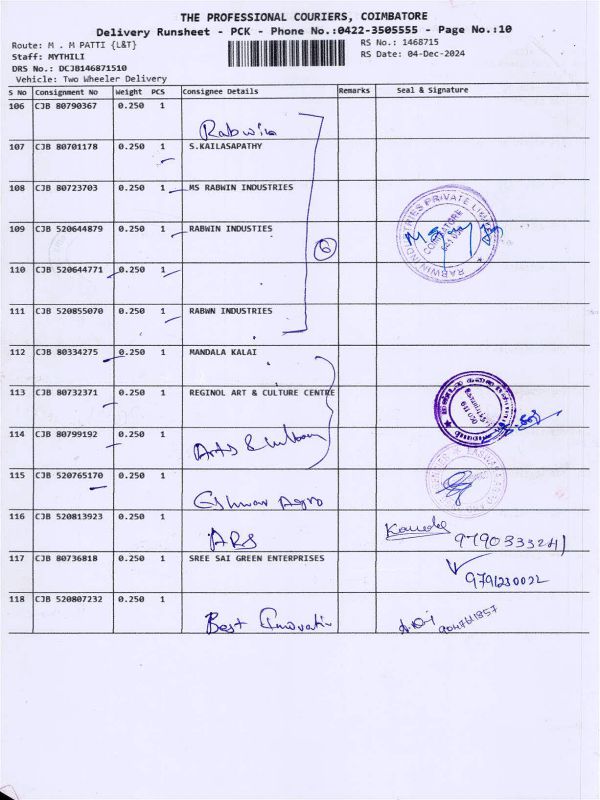 THE PROFESSIONAL COURIERS, COIMBATORE
Delivery Runsheet - PCK - Phone No.:0422-3505555 - Page No.:10
Route: M . M PATTI {L&T}
RS No.: 1468715
Staff: MYTHILI
RS Date: 04-Dec-2024
DRS No.: DCJB146871510
Vehicle: Two Wheeler Delivery
S No Consignment No Weight PCS Consignee Details Remarks Seal & Signature
106 CJB 80790367 0.250 1
Rabwin
107 CJB 80701178 0.250 1 S.KAILASAPATHY
108 CJB 80723703 0.250 1 MS RABWIN INDUSTRIES
RABWIN INDUSTRIES PRIVATE LIMITED
COIMBATORE
109 CJB 520644879 0.250 1 RABWIN INDUSTIES
6
110 CJB 520644771 0.250 1
111 CJB 520855070 0.250 1 RABWN INDUSTRIES
112 CJB 80334275 0.250 1 MANDALA KALAI
113 CJB 80732371 0.250 1 REGINOL ART & CULTURE CENTRE
114 CJB 80799192 0.250 1
Arts & Culture
115 CJB 520765170 0.250 1
Eshwar Agro
116 CJB 520813923 0.250 1
ARS
9790333241
117 CJB 80736818 0.250 1 SREE SAI GREEN ENTERPRISES
9791230022
118 CJB 520807232 0.250 1
Best Innovativ
9047611357